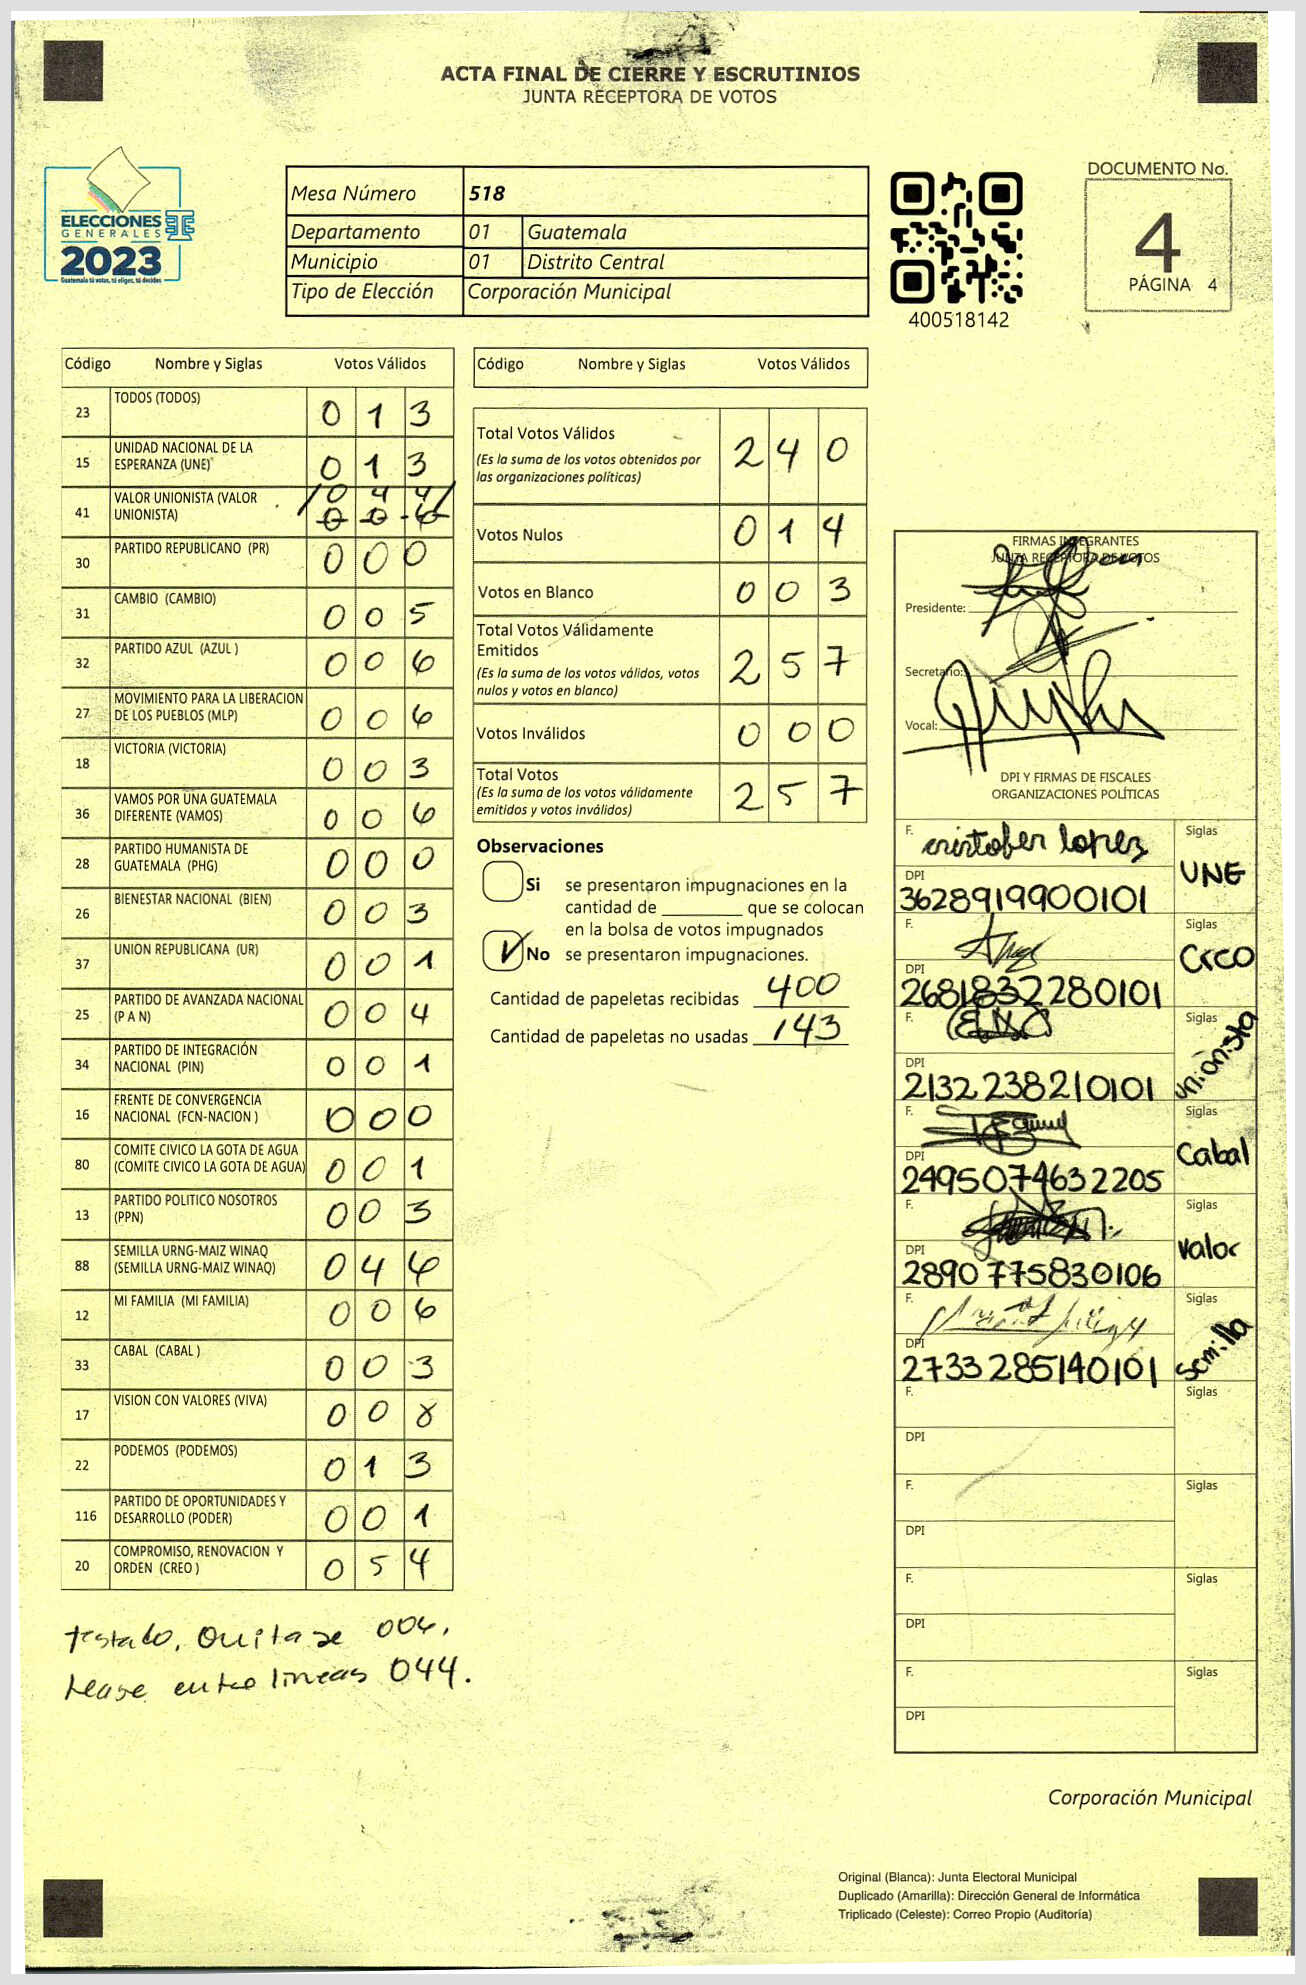 ACTA FINAL DE CIERRE Y ESCRUTINIOS
JUNTA RECEPTORA DE VOTOS
ELECCIONES
GENERALES
2023
Guatemala tú votas, tú eliges, tú decides
Mesa Número 518
Departamento 01 Guatemala
Municipio 01 Distrito Central
Tipo de Elección Corporación Municipal
400518142
DOCUMENTO No.
4
PÁGINA 4
Código Nombre y Siglas Votos Válidos
23 TODOS (TODOS) 0 1 3
15 UNIDAD NACIONAL DE LA ESPERANZA (UNE) 0 1 3
41 VALOR UNIONISTA (VALOR UNIONISTA) / 0 4 4 /
30 PARTIDO REPUBLICANO (PR) 0 0 0
31 CAMBIO (CAMBIO) 0 0 5
32 PARTIDO AZUL (AZUL ) 0 0 6
27 MOVIMIENTO PARA LA LIBERACION DE LOS PUEBLOS (MLP) 0 0 6
18 VICTORIA (VICTORIA) 0 0 3
36 VAMOS POR UNA GUATEMALA DIFERENTE (VAMOS) 0 0 6
28 PARTIDO HUMANISTA DE GUATEMALA (PHG) 0 0 0
26 BIENESTAR NACIONAL (BIEN) 0 0 3
37 UNION REPUBLICANA (UR) 0 0 1
25 PARTIDO DE AVANZADA NACIONAL (P A N) 0 0 4
34 PARTIDO DE INTEGRACIÓN NACIONAL (PIN) 0 0 1
16 FRENTE DE CONVERGENCIA NACIONAL (FCN-NACION ) 0 0 0
80 COMITE CIVICO LA GOTA DE AGUA (COMITE CIVICO LA GOTA DE AGUA) 0 0 1
13 PARTIDO POLITICO NOSOTROS (PPN) 0 0 3
88 SEMILLA URNG-MAIZ WINAQ (SEMILLA URNG-MAIZ WINAQ) 0 4 6
12 MI FAMILIA (MI FAMILIA) 0 0 6
33 CABAL (CABAL ) 0 0 3
17 VISION CON VALORES (VIVA) 0 0 8
22 PODEMOS (PODEMOS) 0 1 3
116 PARTIDO DE OPORTUNIDADES Y DESARROLLO (PODER) 0 0 1
20 COMPROMISO, RENOVACION Y ORDEN (CREO ) 0 5 4
testado, Quitase 006,
Lease entre lineas 044.
Código Nombre y Siglas Votos Válidos
Total Votos Válidos 2 4 0
(Es la suma de los votos obtenidos por
las organizaciones políticas)
Votos Nulos 0 1 4
Votos en Blanco 0 0 3
Total Votos Válidamente
Emitidos 2 5 7
(Es la suma de los votos válidos, votos
nulos y votos en blanco)
Votos Inválidos 0 0 0
Total Votos 2 5 7
(Es la suma de los votos válidamente
emitidos y votos inválidos)
Observaciones
Si se presentaron impugnaciones en la
cantidad de ________ que se colocan
en la bolsa de votos impugnados
No se presentaron impugnaciones.
Cantidad de papeletas recibidas 400
Cantidad de papeletas no usadas 143
FIRMAS INTEGRANTES
JUNTA RECEPTORA DE VOTOS
Presidente:
Secretario:
Vocal:
DPI Y FIRMAS DE FISCALES
ORGANIZACIONES POLÍTICAS
F. cristofer lopez Siglas
DPI UNE
3628919900101
F. Siglas
DPI Creo
2681832280101
F. Siglas
DPI unionista
2132238210101
F. Siglas
DPI Cabal
2495074632205
F. Siglas
DPI valor
2890775830106
F. Siglas
DPI Semilla
2733285140101
F. Siglas
DPI
F. Siglas
DPI
F. Siglas
DPI
F. Siglas
DPI
Corporación Municipal
Original (Blanca): Junta Electoral Municipal
Duplicado (Amarilla): Dirección General de Informática
Triplicado (Celeste): Correo Propio (Auditoría)